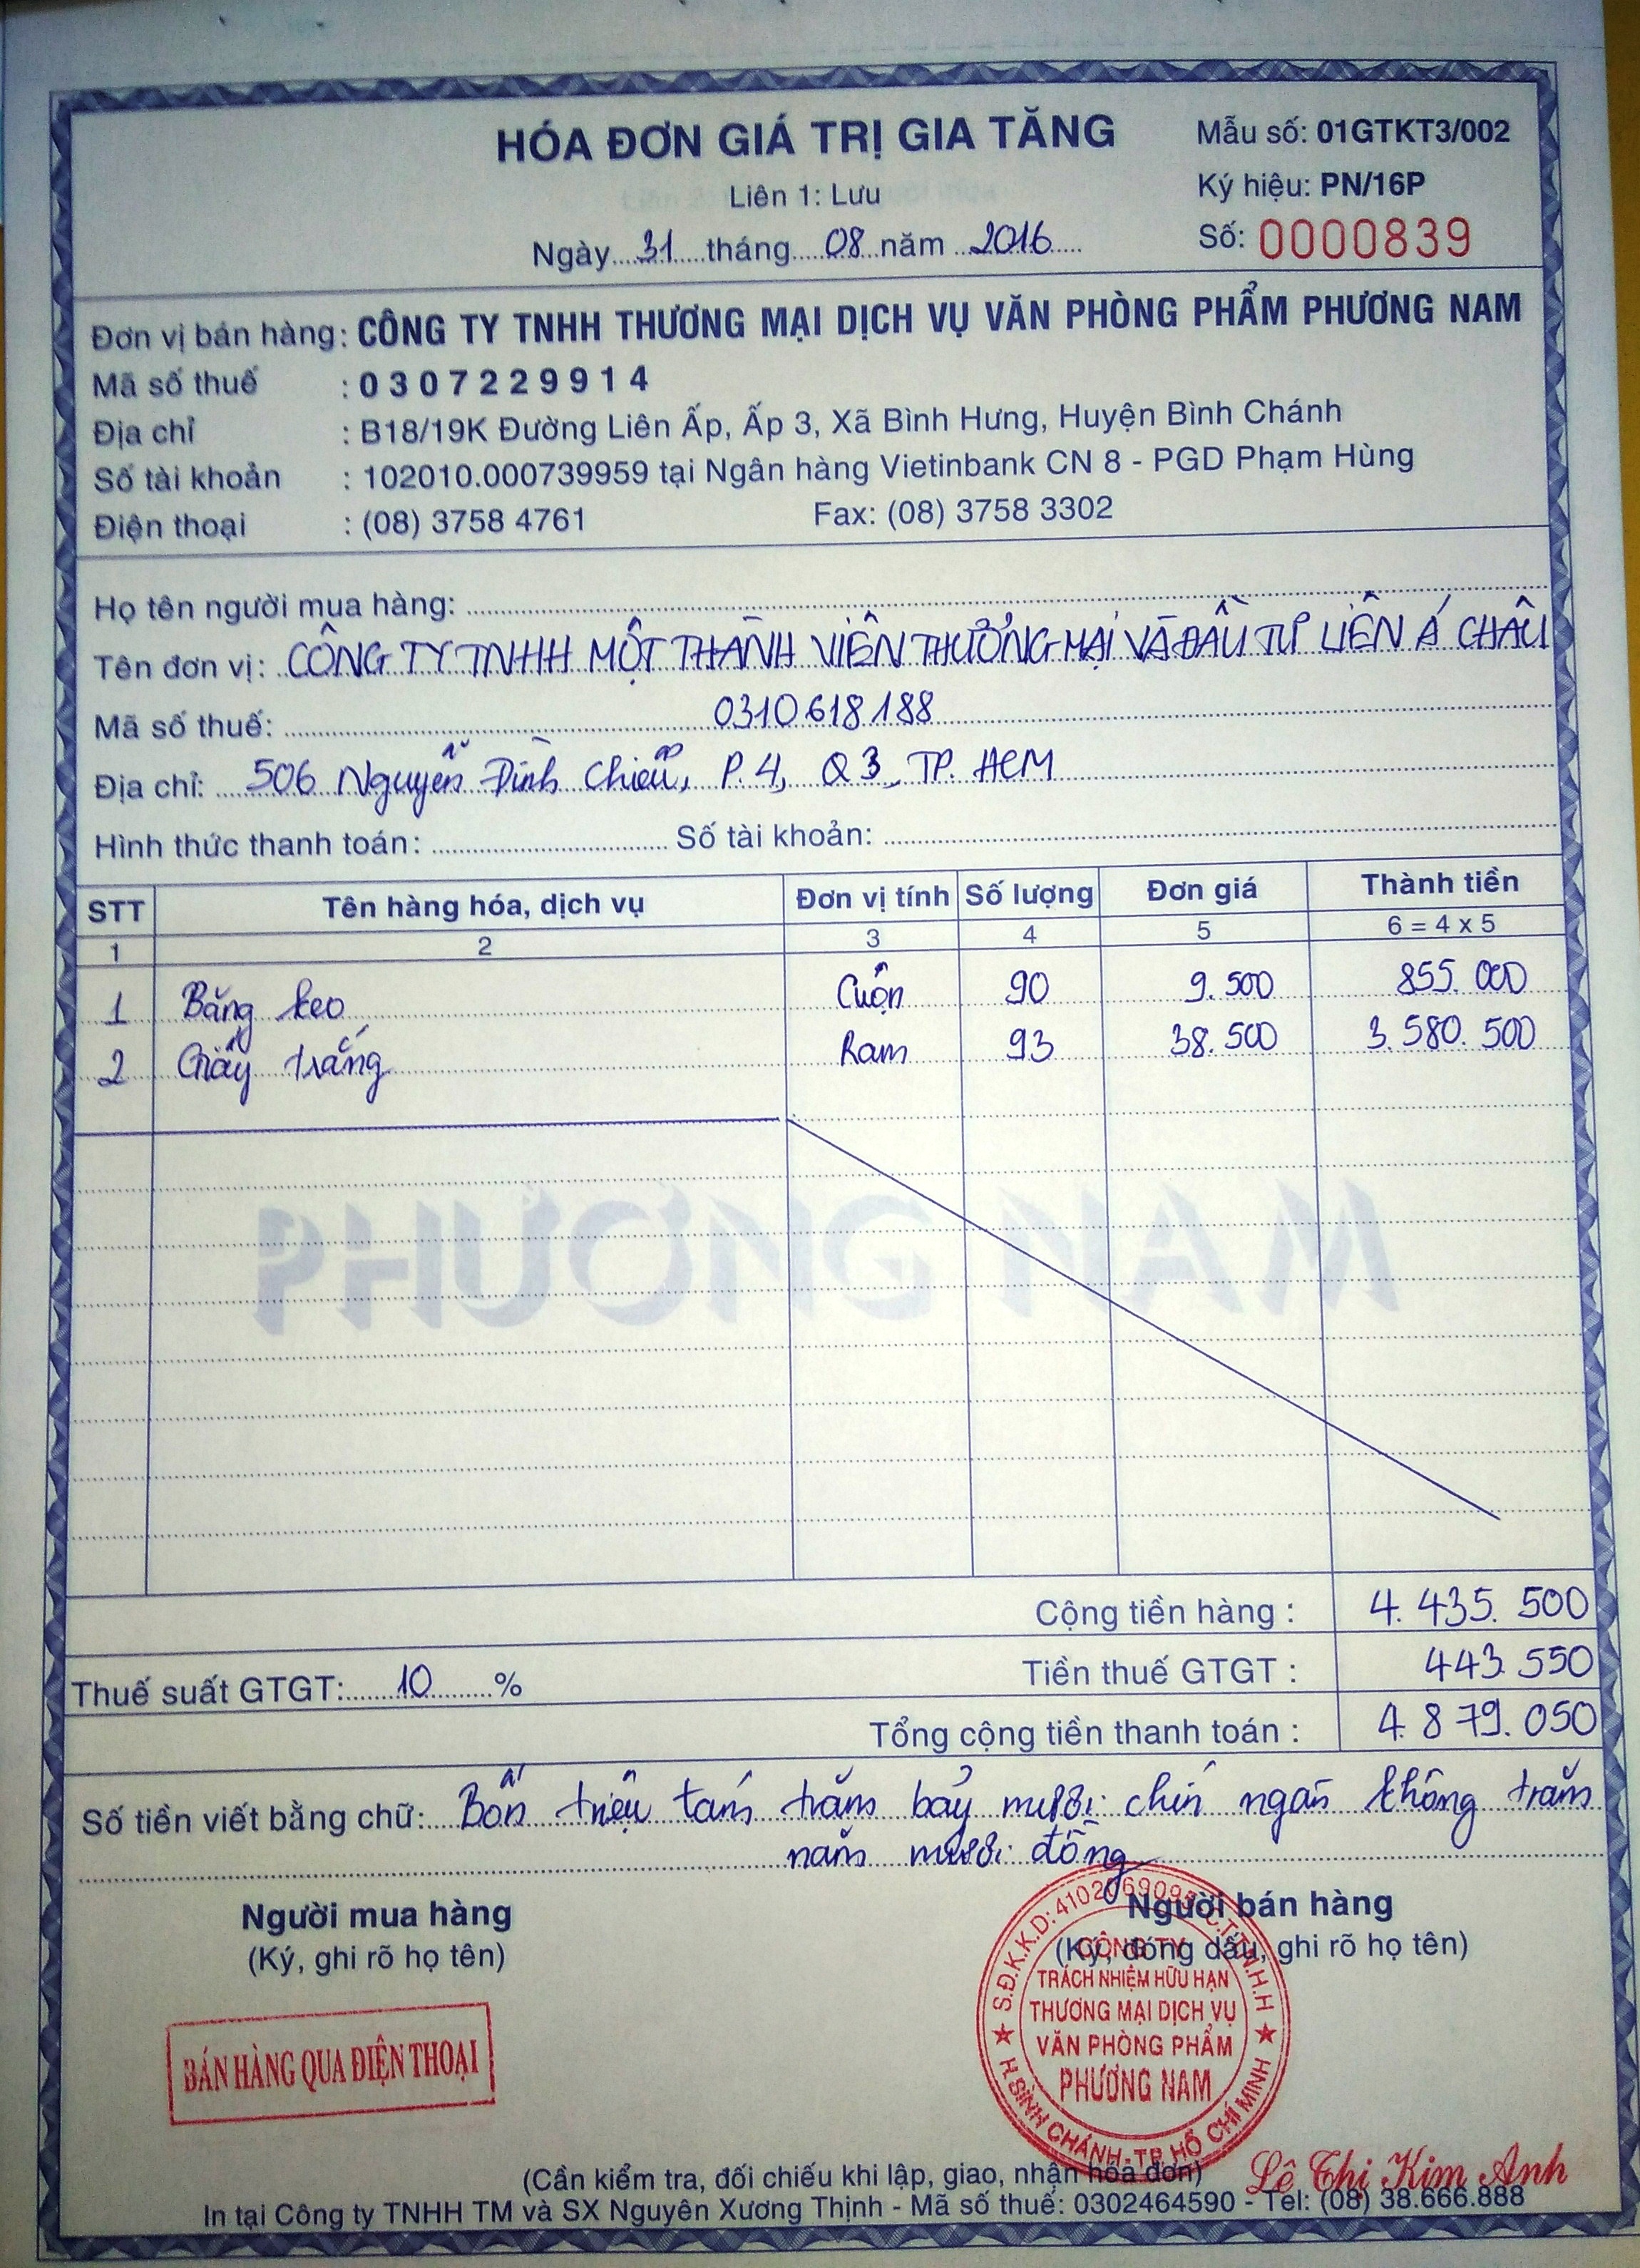 HÓA ĐƠN GIÁ TRỊ GIA TĂNG
Mẫu số: 01GTKT3/002
Liên 1: Lưu
Ký hiệu: PN/16P
Ngày 31 tháng 08 năm 2016
Số: 0000839
Đơn vị bán hàng: CÔNG TY TNHH THƯƠNG MẠI DỊCH VỤ VĂN PHÒNG PHẨM PHƯƠNG NAM
Mã số thuế : 0307229914
Địa chỉ : B18/19K Đường Liên Ấp, Ấp 3, Xã Bình Hưng, Huyện Bình Chánh
Số tài khoản : 102010.000739959 tại Ngân hàng Vietinbank CN 8 - PGD Phạm Hùng
Điện thoại : (08) 3758 4761 Fax: (08) 3758 3302
Họ tên người mua hàng:
Tên đơn vị: CÔNG TY TNHH MỘT THÀNH VIÊN THƯƠNG MẠI VÀ ĐẦU TƯ LIÊN Á CHÂU
Mã số thuế: 0310618188
Địa chỉ: 506 Nguyễn Đình Chiểu, P.4, Q3, TP. HCM
Hình thức thanh toán: Số tài khoản:
STT Tên hàng hóa, dịch vụ Đơn vị tính Số lượng Đơn giá Thành tiền
1 2 3 4 5 6 = 4 x 5
1 Băng keo Cuộn 90 9.500 855.000
2 Giấy trắng Ram 93 38.500 3.580.500
PHƯƠNG NAM
Cộng tiền hàng : 4.435.500
Thuế suất GTGT: 10 % Tiền thuế GTGT : 443.550
Tổng cộng tiền thanh toán : 4.879.050
Số tiền viết bằng chữ: Bốn triệu tám trăm bảy mươi chín ngàn không trăm
năm mươi đồng
Người mua hàng
(Ký, ghi rõ họ tên)
Người bán hàng
(Ký, đóng dấu, ghi rõ họ tên)
BÁN HÀNG QUA ĐIỆN THOẠI
CÔNG TY
TRÁCH NHIỆM HỮU HẠN
THƯƠNG MẠI DỊCH VỤ
VĂN PHÒNG PHẨM
PHƯƠNG NAM
H.BÌNH CHÁNH-TP.HỒ CHÍ MINH
Lê Thị Kim Anh
(Cần kiểm tra, đối chiếu khi lập, giao, nhận hóa đơn)
In tại Công ty TNHH TM và SX Nguyên Xương Thịnh - Mã số thuế: 0302464590 - Tel: (08) 38.666.888